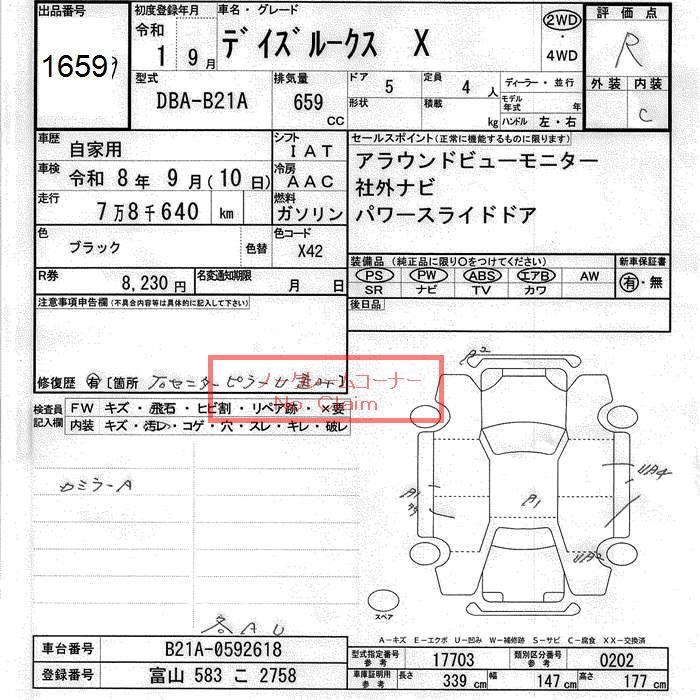 出品番号
1659
初度登録年月
令和
1 9月
車名・グレード
デイズルークス X
2WD
・
4WD
評価点
R
外装 内装
C
型式
DBA-B21A
排気量
659 CC
ドア 5
定員 4人
形状
積載 kg
ディーラー・並行
モデル年式 年
ハンドル 左・右
車歴 自家用
シフト IAT
車検 令和 8年 9月(10日)
冷房 AAC
走行 7万8千640 km
燃料 ガソリン
色 ブラック 色替
色コード X42
R券 8,230円
名変通知期限 月 日
セールスポイント(正常に機能するものに限ります)
アラウンドビューモニター
社外ナビ
パワースライドドア
装備品(純正品に限り○をつけてください)
PS PW ABS エアB AW
SR ナビ TV カワ
新車保証書
有・無
後日品
注意事項申告欄(不具合内容等は具体的に記入して下さい)
修復歴 有 [箇所
ノークレームコーナー
No Claim
検査員記入欄
FW キズ・飛石・ヒビ割・リペア跡・×要
内装 キズ・汚レ・コゲ・穴・スレ・キレ・破レ
カミラーA
各AU
A2
A1
A1
UA4
UA2
スペア
A-キズ E-エクボ U-凹み W-補修跡 S-サビ C-腐食 XX-交換済
車台番号 B21A-0592618
登録番号 富山 583 こ 2758
型式指定番号 参考 17703
類別区分番号 参考 0202
車庫証明用 参考 長さ 339cm 幅 147cm 高さ 177cm